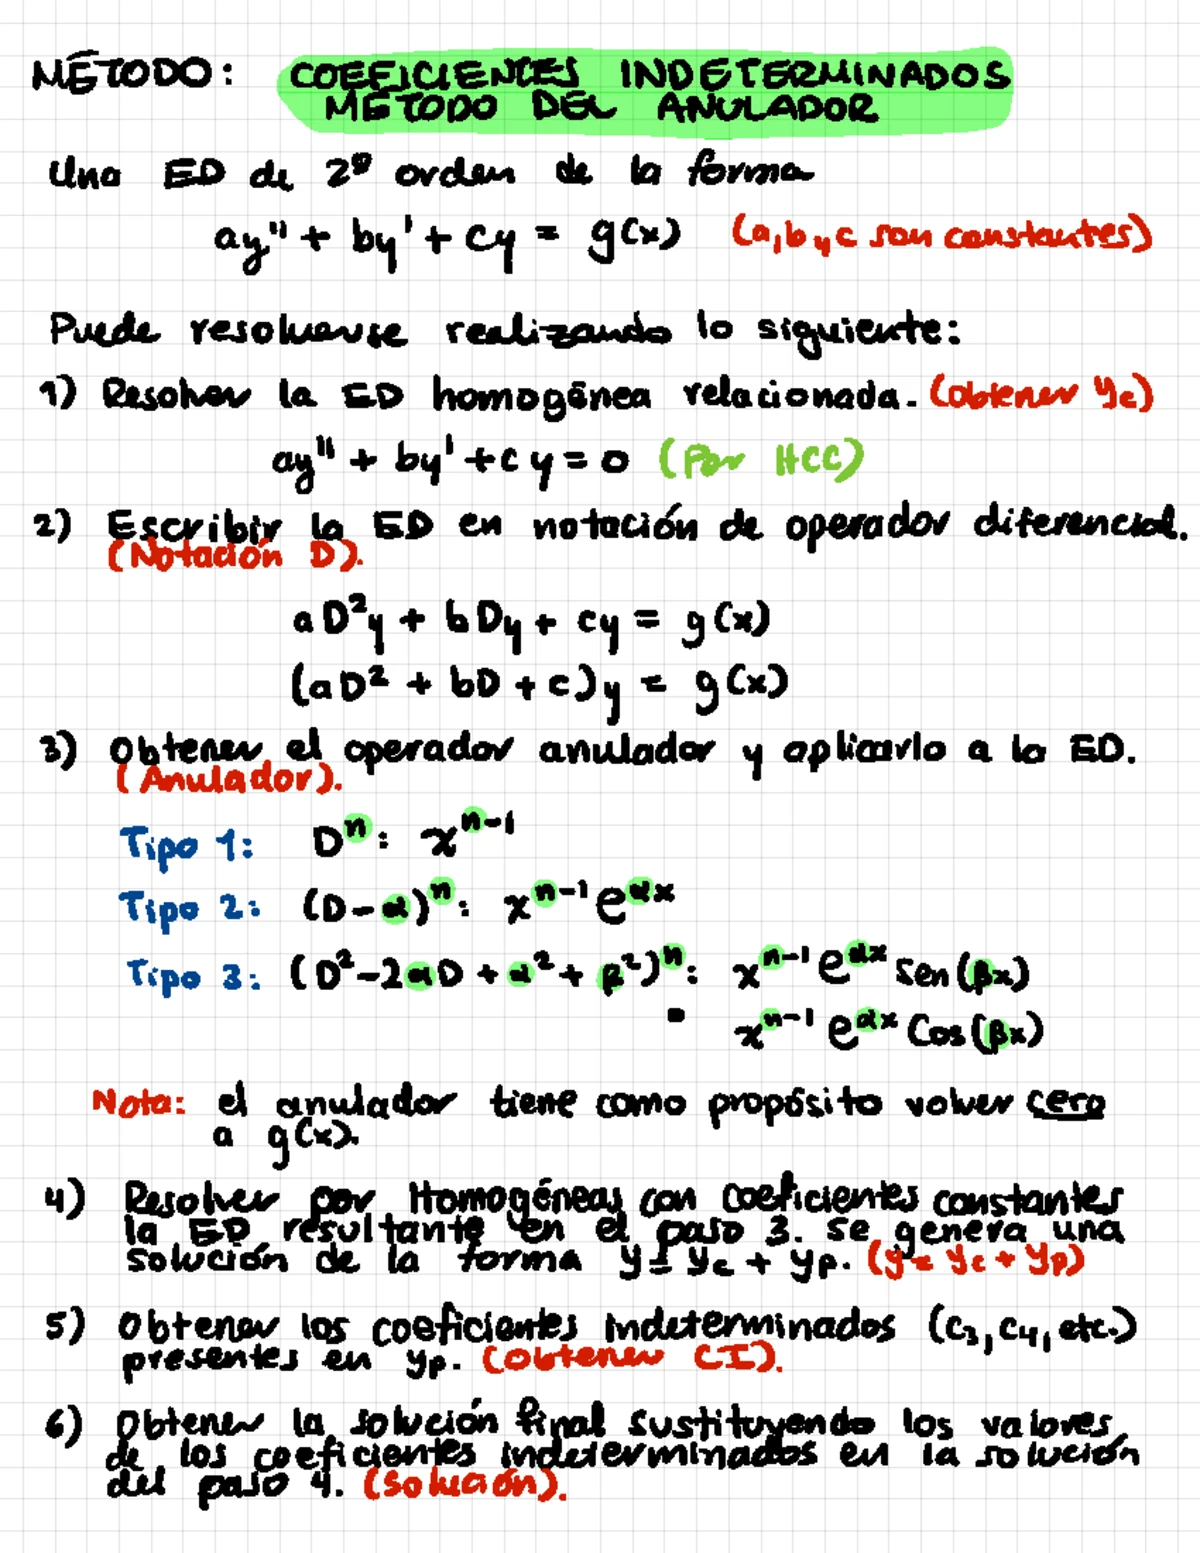 MÉTODO: COEFICIENTES INDETERMINADOS
MÉTODO DEL ANULADOR
Una ED de 2º orden de la forma
ay'' + by' + cy = g(x) (a, b y c son constantes)
Puede resolverse realizando lo siguiente:
1) Resolver la ED homogénea relacionada. (Obtener yc)
ay'' + by' + cy = 0 (Por HCC)
2) Escribir la ED en notación de operador diferencial.
(Notación D).
aD²y + bDy + cy = g(x)
(aD² + bD + c)y = g(x)
3) Obtener el operador anulador y aplicarlo a la ED.
(Anulador).
Tipo 1: Dⁿ: xⁿ⁻¹
Tipo 2: (D-α)ⁿ: xⁿ⁻¹e^αx
Tipo 3: (D²-2αD + α² + β²)ⁿ: xⁿ⁻¹e^αx Sen(βx)
xⁿ⁻¹e^αx Cos(βx)
Nota: el anulador tiene como propósito volver cero
a g(x).
4) Resolver por Homogéneas con Coeficientes constantes
la ED resultante en el paso 3. Se genera una
solución de la forma y = yc + yp. (y = yc + yp)
5) Obtener los coeficientes indeterminados (C3, C4, etc.)
presentes en yp. (Obtener CI).
6) Obtener la solución final sustituyendo los valores
de los coeficientes indeterminados en la solución
del paso 4. (Solución).